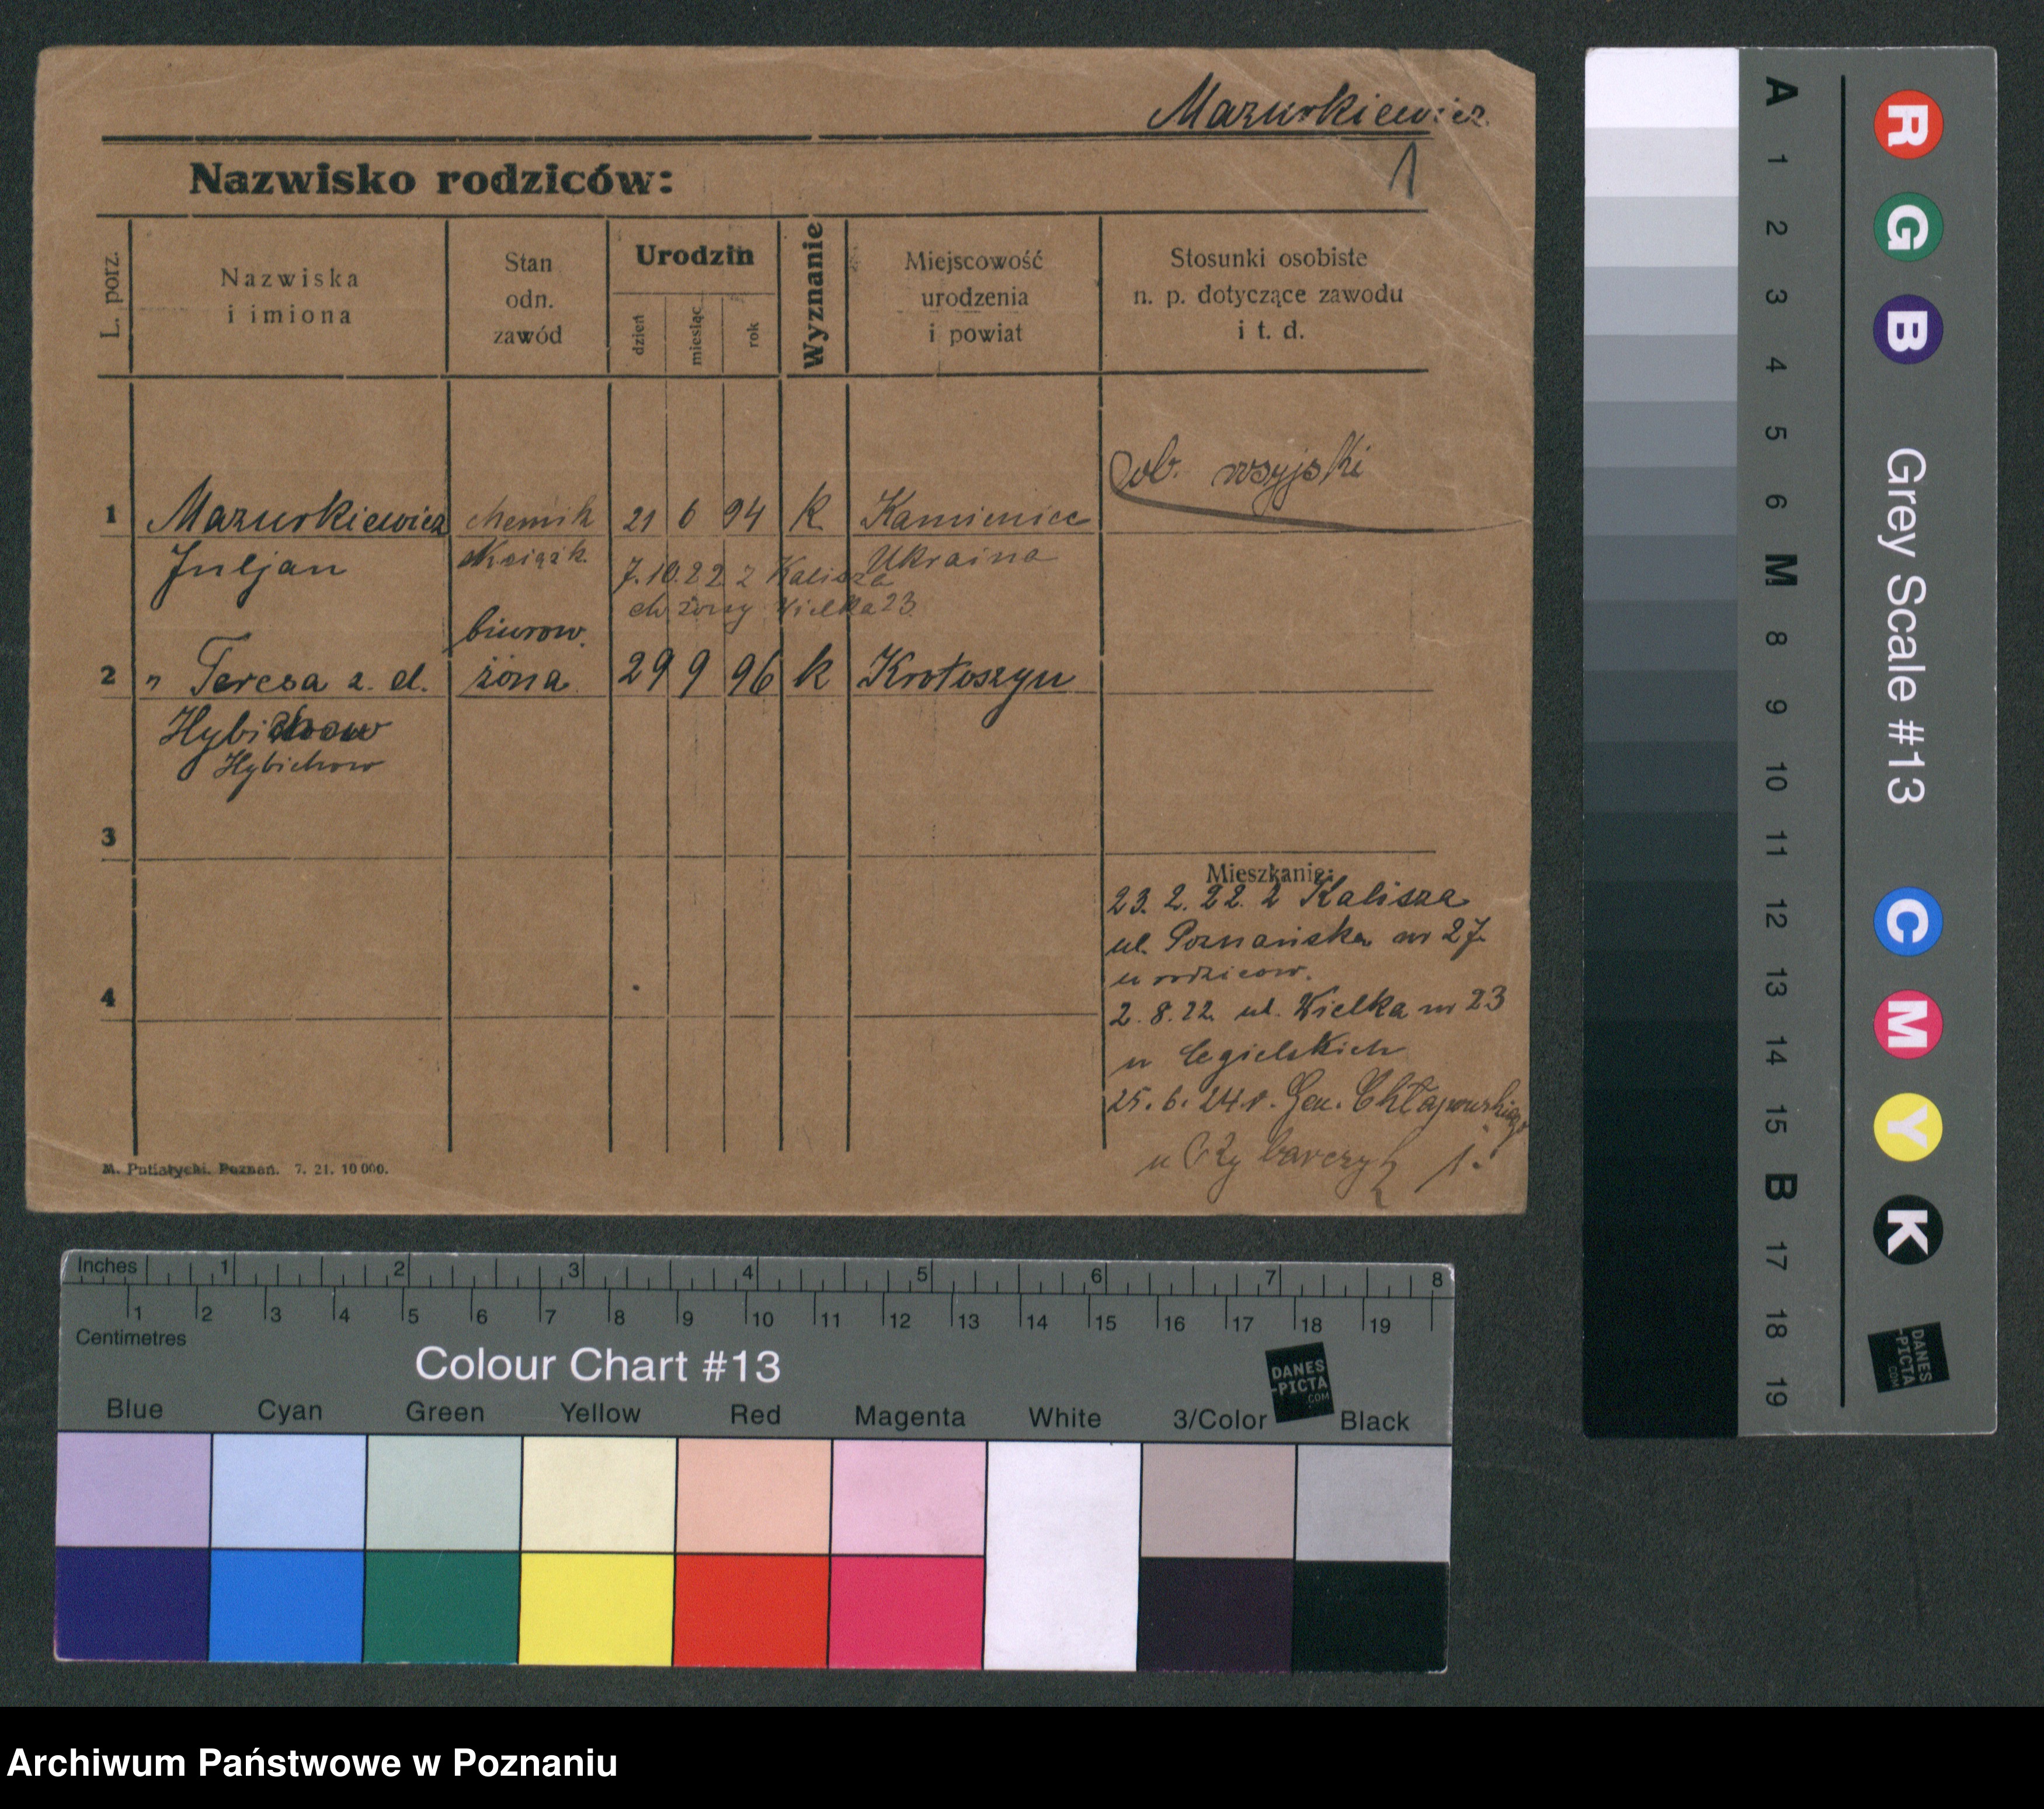 Mazurkiewicz.
1
Nazwisko rodziców:
L. porz.
Nazwiska
i imiona
Stan
odn.
zawód
Urodzin
dzień
miesiąc
rok
Wyznanie
Miejscowość
urodzenia
i powiat
Stosunki osobiste
n. p. dotyczące zawodu
i t. d.
ob. rosyjski
1 Mazurkiewicz chemik 21 6 94 k. Kamieniec
Juljan Książk. Ukraina
7.10.22 z Kalisza
Wielka 23
biurow.
2 " Teresa z. d. żona 29 9 96 k Krotoszyn
Hybichow
3
4
Mieszkanie:
23. 2. 22. z Kalisza
ul. Poznańska nr 27
u rodzicow.
2. 8. 22. ul. Wielka nr 23
u Cegielskich
25. 6. 24 r. Gen. Chłapowskiego
u Rybarczyk 1.
M. Putiatycki. Poznań. 7. 21. 10 000.
Inches 1 2 3 4 5 6 7 8
1 2 3 4 5 6 7 8 9 10 11 12 13 14 15 16 17 18 19
Centimetres
Colour Chart #13
DANES
-PICTA
.COM
Blue Cyan Green Yellow Red Magenta White 3/Color Black
A 1 2 3 4 5 6 M 8 9 10 11 12 13 14 15 B 17 18 19
R G B Grey Scale #13 C M Y K
DANES
-PICTA
.COM
Archiwum Państwowe w Poznaniu